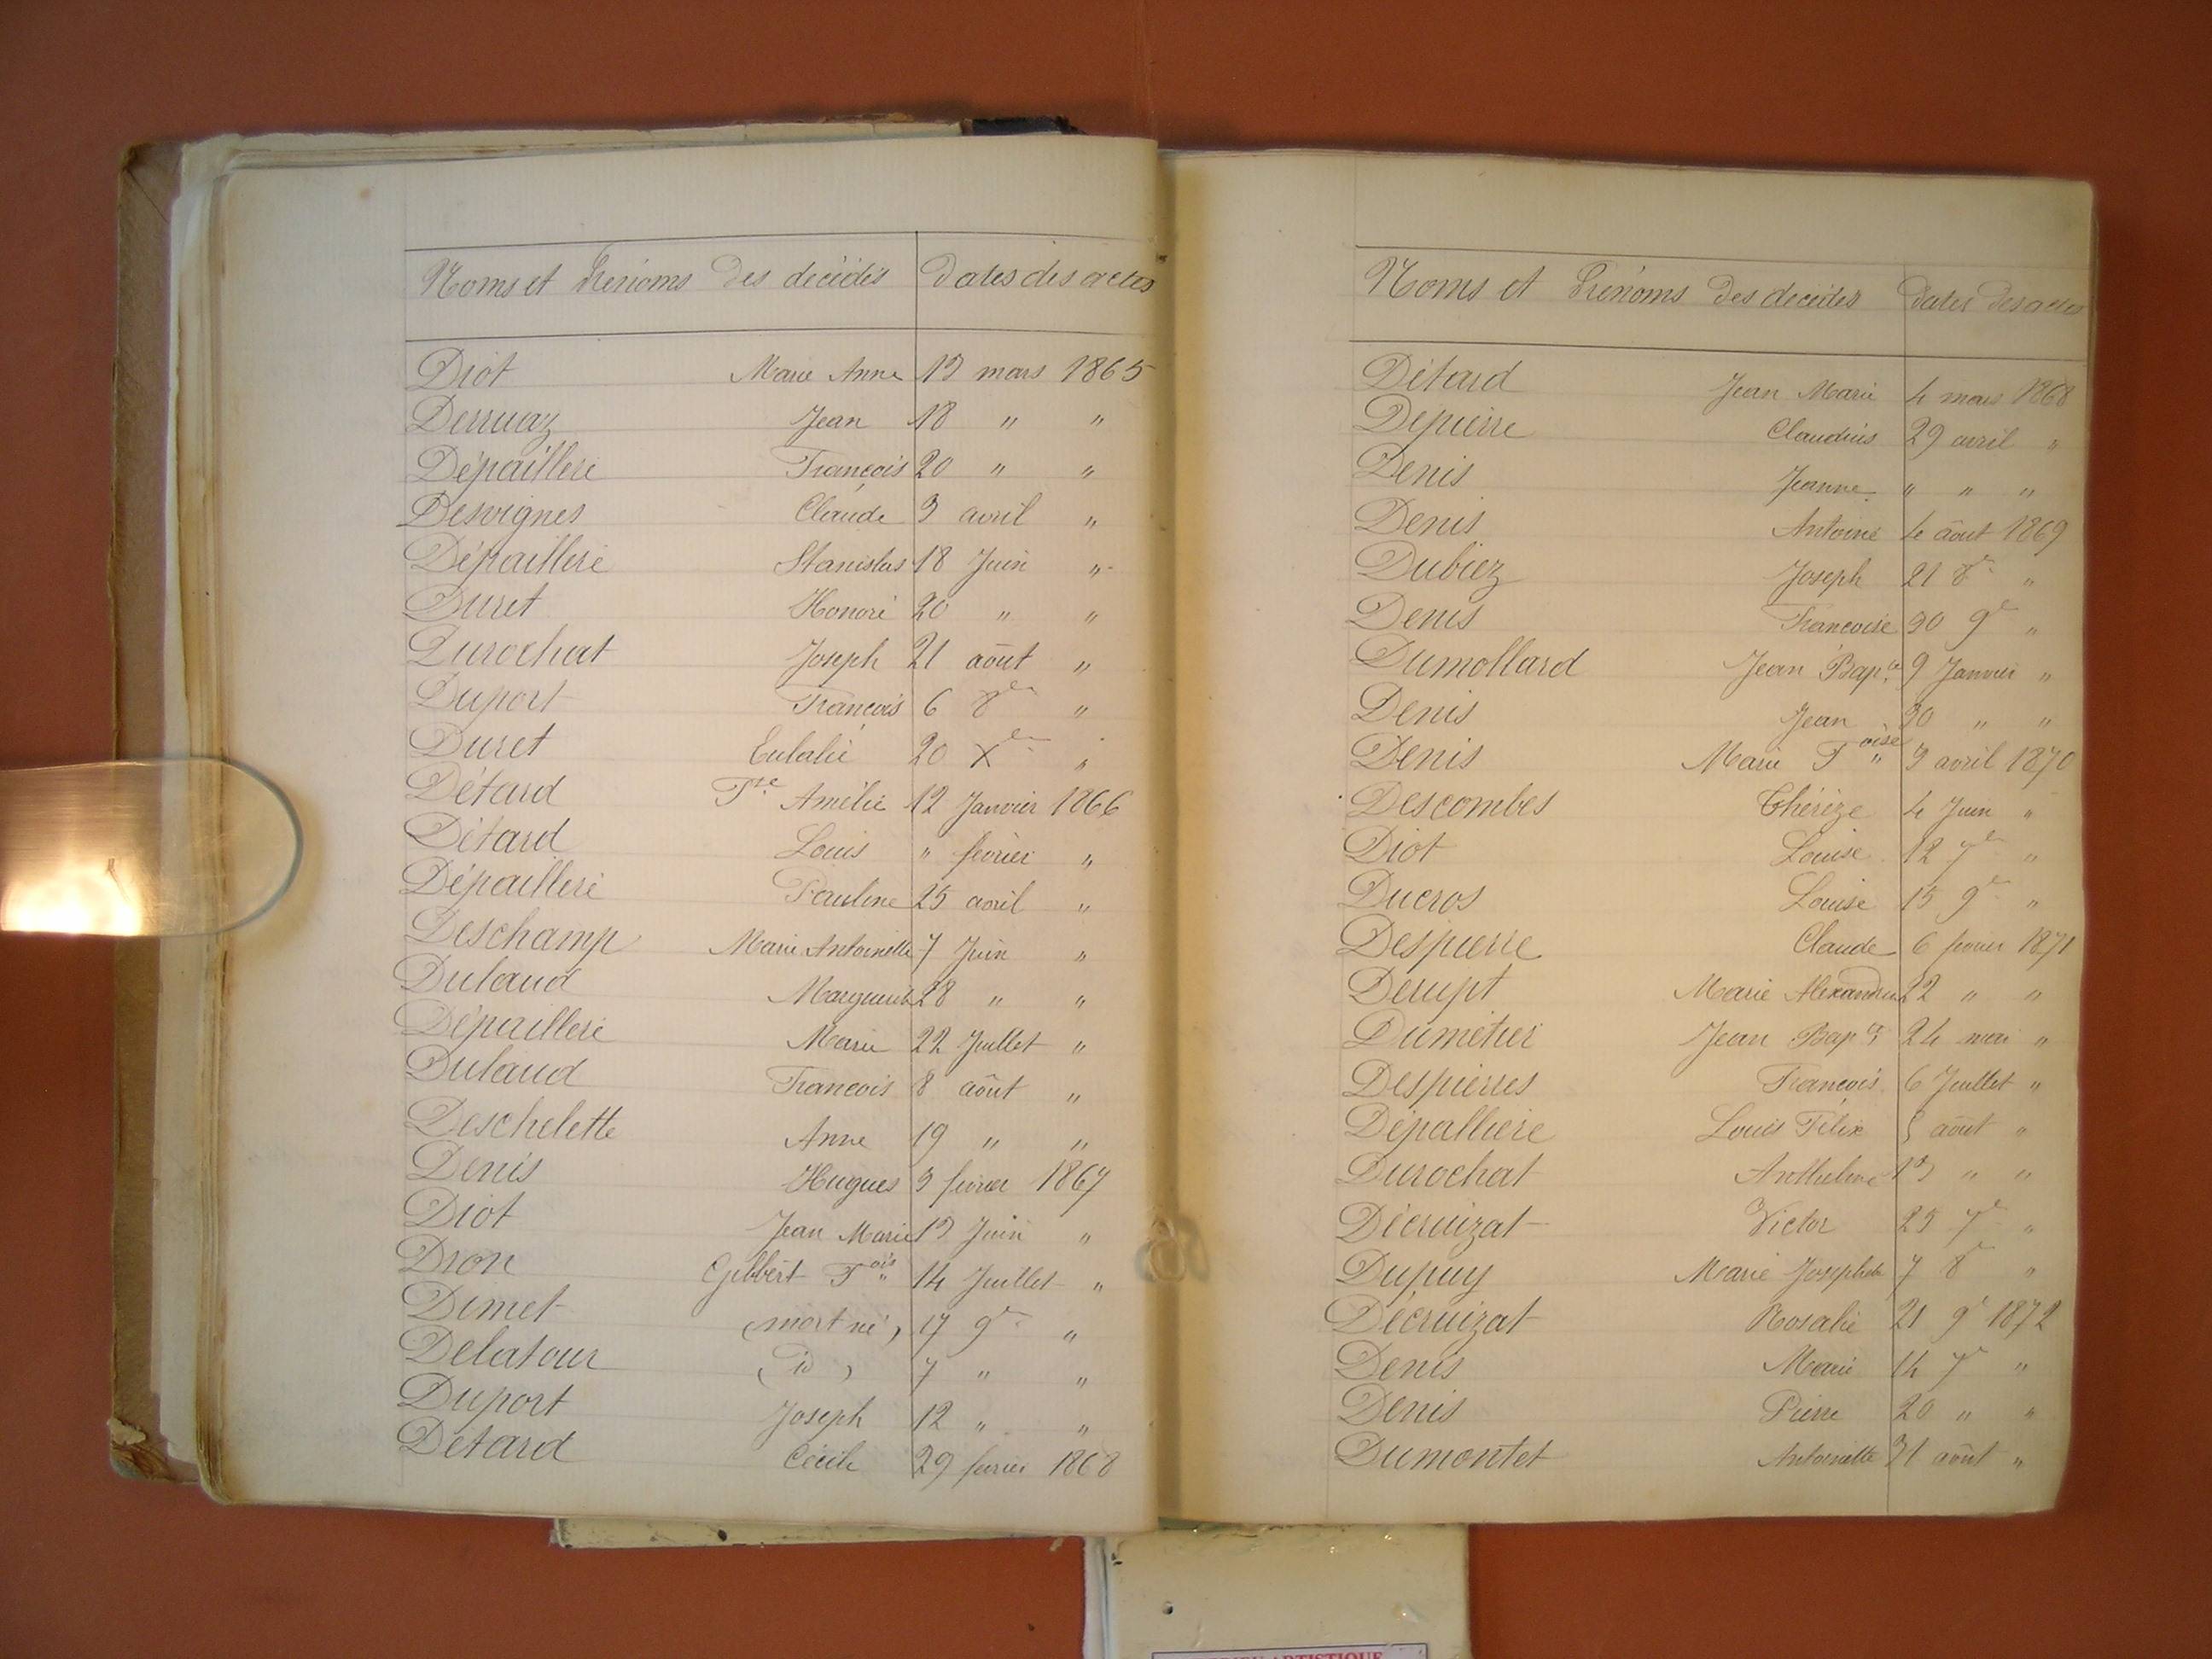 Noms et Prénoms des décédés Dates des actes
Diot Marie Anne 13 mars 1865
Derruaz Jean 18 " "
Dépaillere François 20 " "
Desvignes Claude 3 avril "
Dépailleré Stanislas 18 Juin "
Duret Honoré 20 " "
Durochat Joseph 21 août "
Duport François 6 8bre "
Duret Eulalie 20 Xbre "
Détard Fse Amélie 12 Janvier 1866
Détard Louis " février "
Dépailleré Pauline 25 avril "
Deschamp Marie Antoinette 7 Juin "
Dulaud Marguerite 28 " "
Dépailleré Marie 22 Juillet "
Dulaud François 8 août "
Deschelette Anne 19 " "
Denis Hugues 3 février 1867
Diot Jean Marie 13 Juin "
Dron Gilbert Fois 14 Juillet "
Dimet (mort né) 17 9bre "
Delatour (id) 7 " "
Duport Joseph 12 " "
Détard Cécile 29 février 1868
Noms et Prénoms des décédés Dates des actes
Détard Jean Marie 4 mars 1868
Depierre Claudius 29 avril "
Denis Jeanne " " "
Denis Antoine 4 août 1869
Dubiez Joseph 21 8e "
Denis Françoise 30 9e "
Dumollard Jean Bapte 9 Janvier "
Denis Jean 30 " "
Denis Marie Foise 3 avril 1870
Descombes Thérèze 4 Juin "
Diot Louise 12 7e "
Ducros Louise 15 9e "
Despierre Claude 6 février 1871
Derupt Marie Alexandrine 22 " "
Dumétier Jean Bapte 24 mai "
Despierres François 6 Juillet "
Dépalliere Louis Félix 5 août "
Durochat Anthelme 13 " "
Décruizat Victor 25 7e "
Dupuy Marie Josephte 7 8e "
Décruizat Rosalie 21 9e 1872
Denis Marie 14 7e "
Denis Pierre 20 " "
Dumontet Antoinette 31 août "